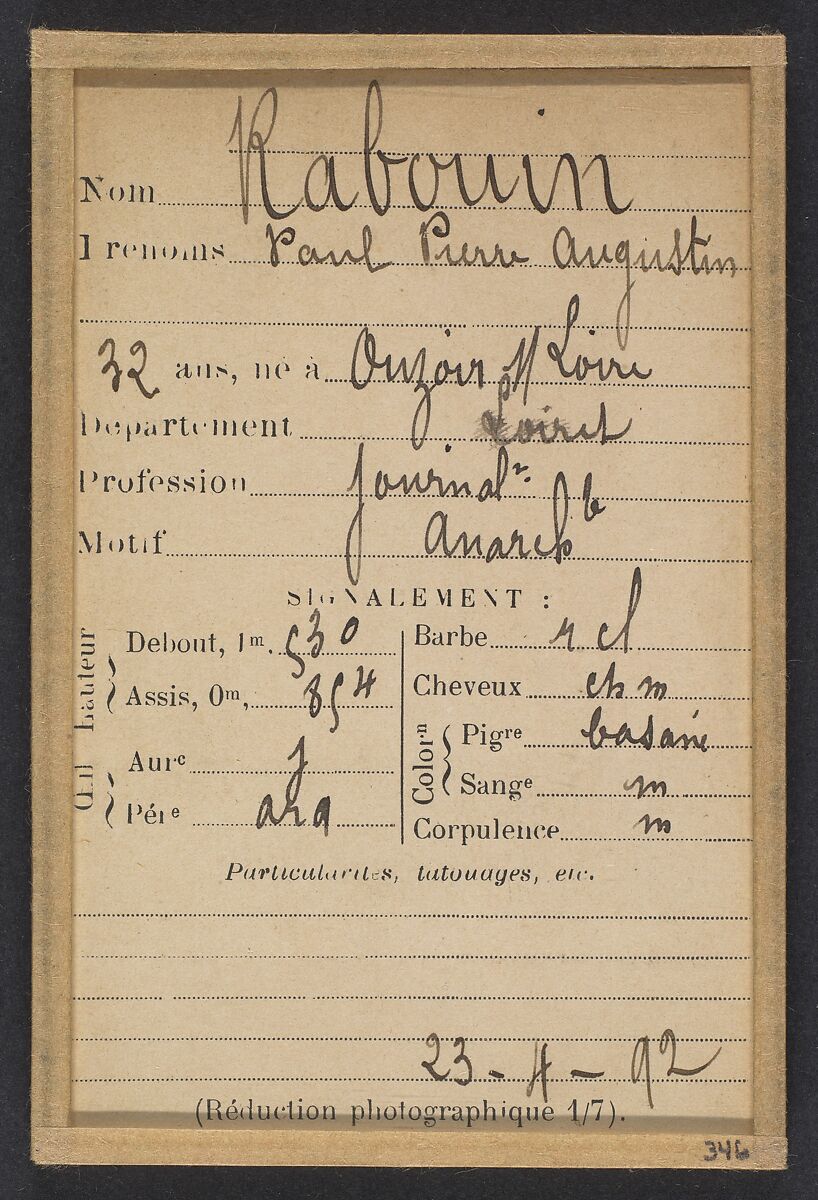 Nom Rabouin
Prenoms Paul Pierre Augustin
32 ans, né à Ouzoir s/ Loire
Département Loiret
Profession Journalr.
Motif Anarch
SIGNALEMENT :
Hauteur
Debout, 1m. 530
Assis, 0m, 854
Œil
Aurc j
Pére
Barbe r cl
Cheveux ch m
Colorn
Pigre basané
Sange m
Corpulence m
Particularités, tatouages, etc.
23-4-92
(Réduction photographique 1/7).
346